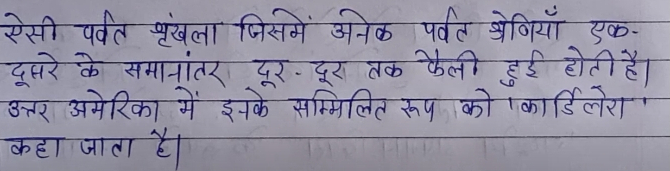 ऐसी पर्वत श्रृंखला जिसमें अनेक पर्वत श्रेणियाँ एक-
दूसरे के समानांतर दूर-दूर तक फैली हुई होती है।
उत्तर अमेरिका में इनके सम्मिलित रूप को 'कार्डिलेरा'
कहा जाता है।